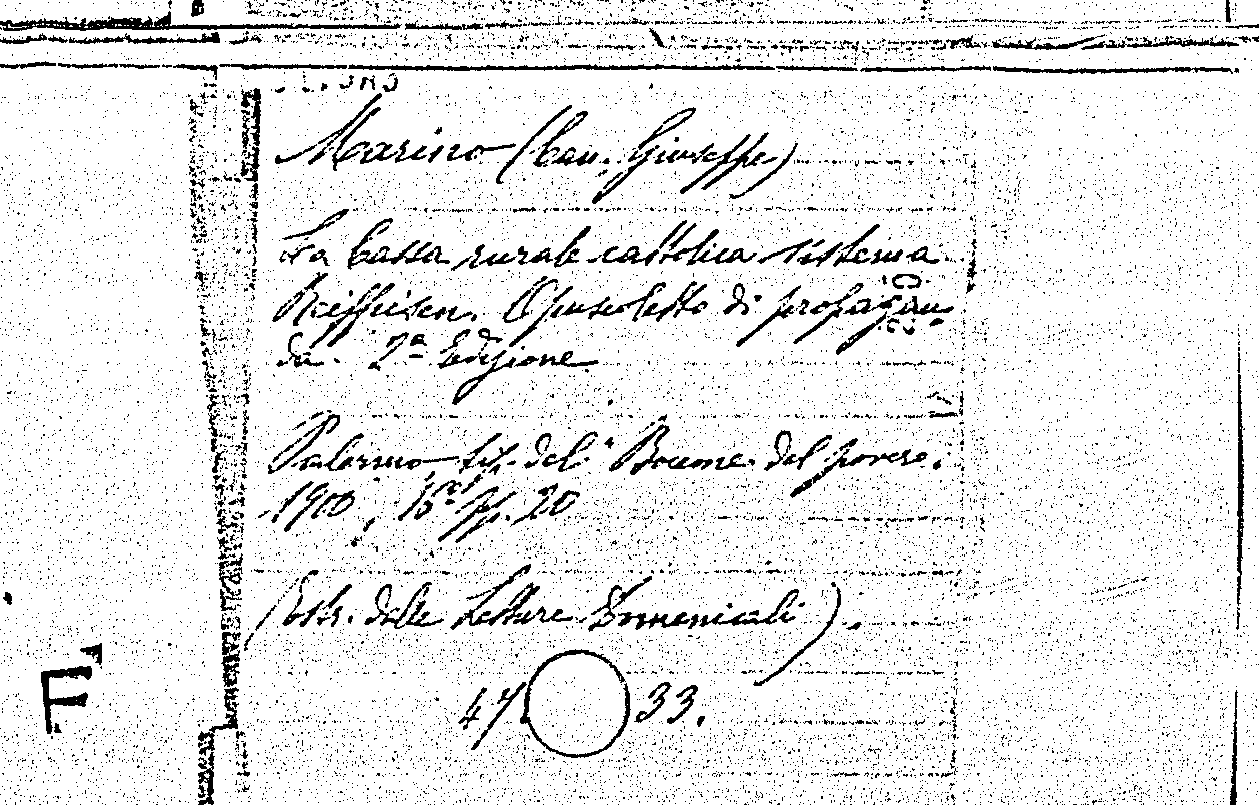 Marino (Can. Giuseppe)
La Cassa rurale cattolica sistema
Raiffeisen. Opuscoletto di propagan-
da. 2ª Edizione
Palermo, tip. del "Boccone del povero.
1900, 16° pp. 20
(Estr. dalle Letture Domenicali).
47 33.
F